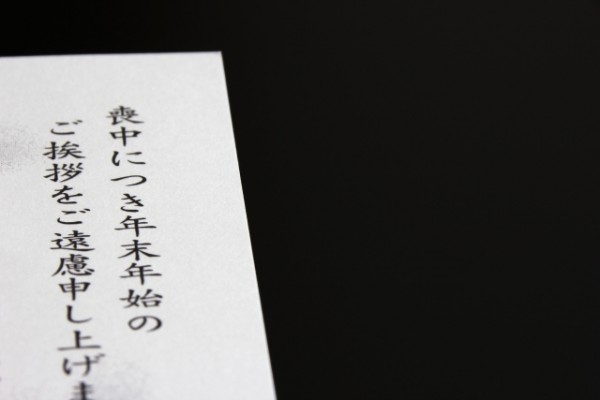 喪中につき年末年始の
ご挨拶をご遠慮申し上げま